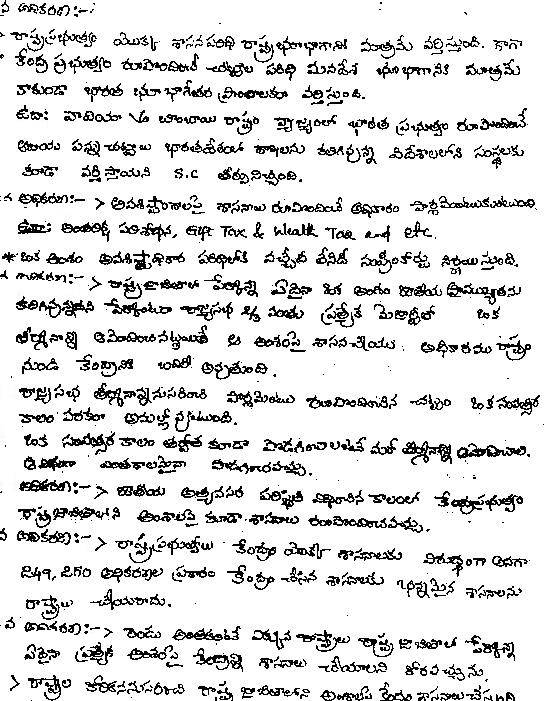 వ అధికరణ:-
రాష్ట్రప్రభుత్వం యొక్క శాసన పరిధి రాష్ట్రభూభాగానికి మాత్రమే వర్తిస్తుంది. కాగా
కేంద్ర ప్రభుత్వం రూపొందించే చట్టాల పరిధి మనదేశ భూభాగానికి మాత్రమే
కాకుండా భారత భూభాగేతర ప్రాంతాలకూ వర్తిస్తుంది.
ఉదా: వాడియా Vs బాంబాయి రాష్ట్రం వ్యాజ్యంలో భారత ప్రభుత్వం రూపొందించే
ఆదాయ పన్ను చట్టాలు భారతదేశంలో శాఖలను కలిగివున్న విదేశాలలోని సంస్థలకు
కూడా వర్తిస్తాయని S.C తీర్పునిచ్చింది.
వ అధికరణ:- > అవశిష్టాంశాలపై శాసనాలు రూపొందించే అధికారం పార్లమెంటుకుంటుంది.
ఉదా: అంతరిక్ష పరిశోధన, Gift Tax & Wealth Tax and etc.
* ఒక అంశం అవశిష్టాధికార పరిధిలోకి వచ్చేది లేనిదీ సుప్రీంకోర్టు నిర్ణయిస్తుంది.
వ అధికరణ:- > రాష్ట్రజాబితాలో పేర్కొన్న ఏదైనా ఒక అంశం జాతీయ ప్రాముఖ్యతను
కలిగివున్నదని పేర్కొంటూ రాజ్యసభ 2/3 వంతు ప్రత్యేక మెజార్టీతో ఒక
తీర్మానాన్ని ఆమోదించినట్లయితే ఆ అంశంపై శాసనం చేయు అధికారము రాష్ట్రం
నుండి కేంద్రానికి బదిలీ అవుతుంది.
రాజ్యసభ తీర్మానాన్ననుసరించి పార్లమెంటు రూపొందించిన చట్టం ఒక సంవత్సర
కాలం వరకూ అమల్లో వుంటుంది.
ఒక సంవత్సర కాలం తర్వాత కూడా పొడగించాలంటే మరో తీర్మానాన్ని ఆమోదించాలి.
ఎంతకాలమైనా పొడిగించవచ్చు.
అధికరణ:- > జాతీయ అత్యవసర పరిస్థితి విధించిన కాలంలో కేంద్రప్రభుత్వం
రాష్ట్రజాబితాలోని అంశాలపై కూడా శాసనాలు రూపొందించవచ్చు.
వ అధికరణ:- > రాష్ట్రప్రభుత్వాలు కేంద్రం యొక్క శాసనాలకు విరుద్ధంగా అనగా
249, 250 అధికరణల ప్రకారం కేంద్రం చేసిన శాసనాలకు భిన్నమైన శాసనాలను
రాష్ట్రాలు చేయరాదు.
వ అధికరణ:- > రెండు అంతకంటే ఎక్కువ రాష్ట్రాలు రాష్ట్ర జాబితాలో పేర్కొన్న
ఏదైనా ప్రత్యేక అంశంపై కేంద్రాన్ని శాసనాలు చేయాలని కోరవచ్చును.
> రాష్ట్రాల కోరికననుసరించి రాష్ట్ర జాబితాలోని అంశాలపై కేంద్రం శాసనాలు చేస్తుంది